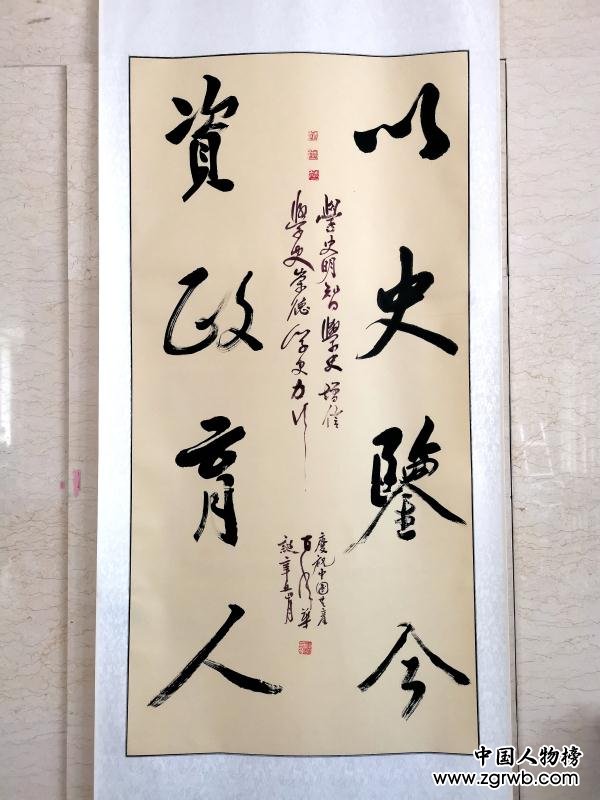 以史鑒今
資政育人
學史明智學史增信
學史崇德學史力行
慶祝中国共産
百年華
誕辛丑月
中国人物榜
www.zgrwb.com